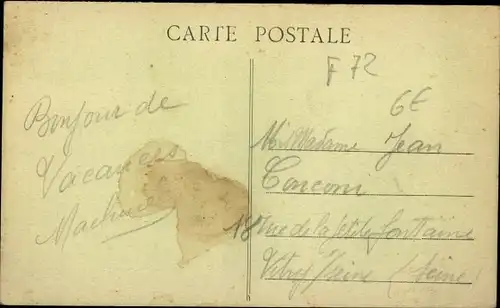 CARTE POSTALE
F 72
6€
Bonjour de
Vacances
M. Madame Jean
Corconi
18 rue de la petite fontaine
Vitry / Seine (Seine)